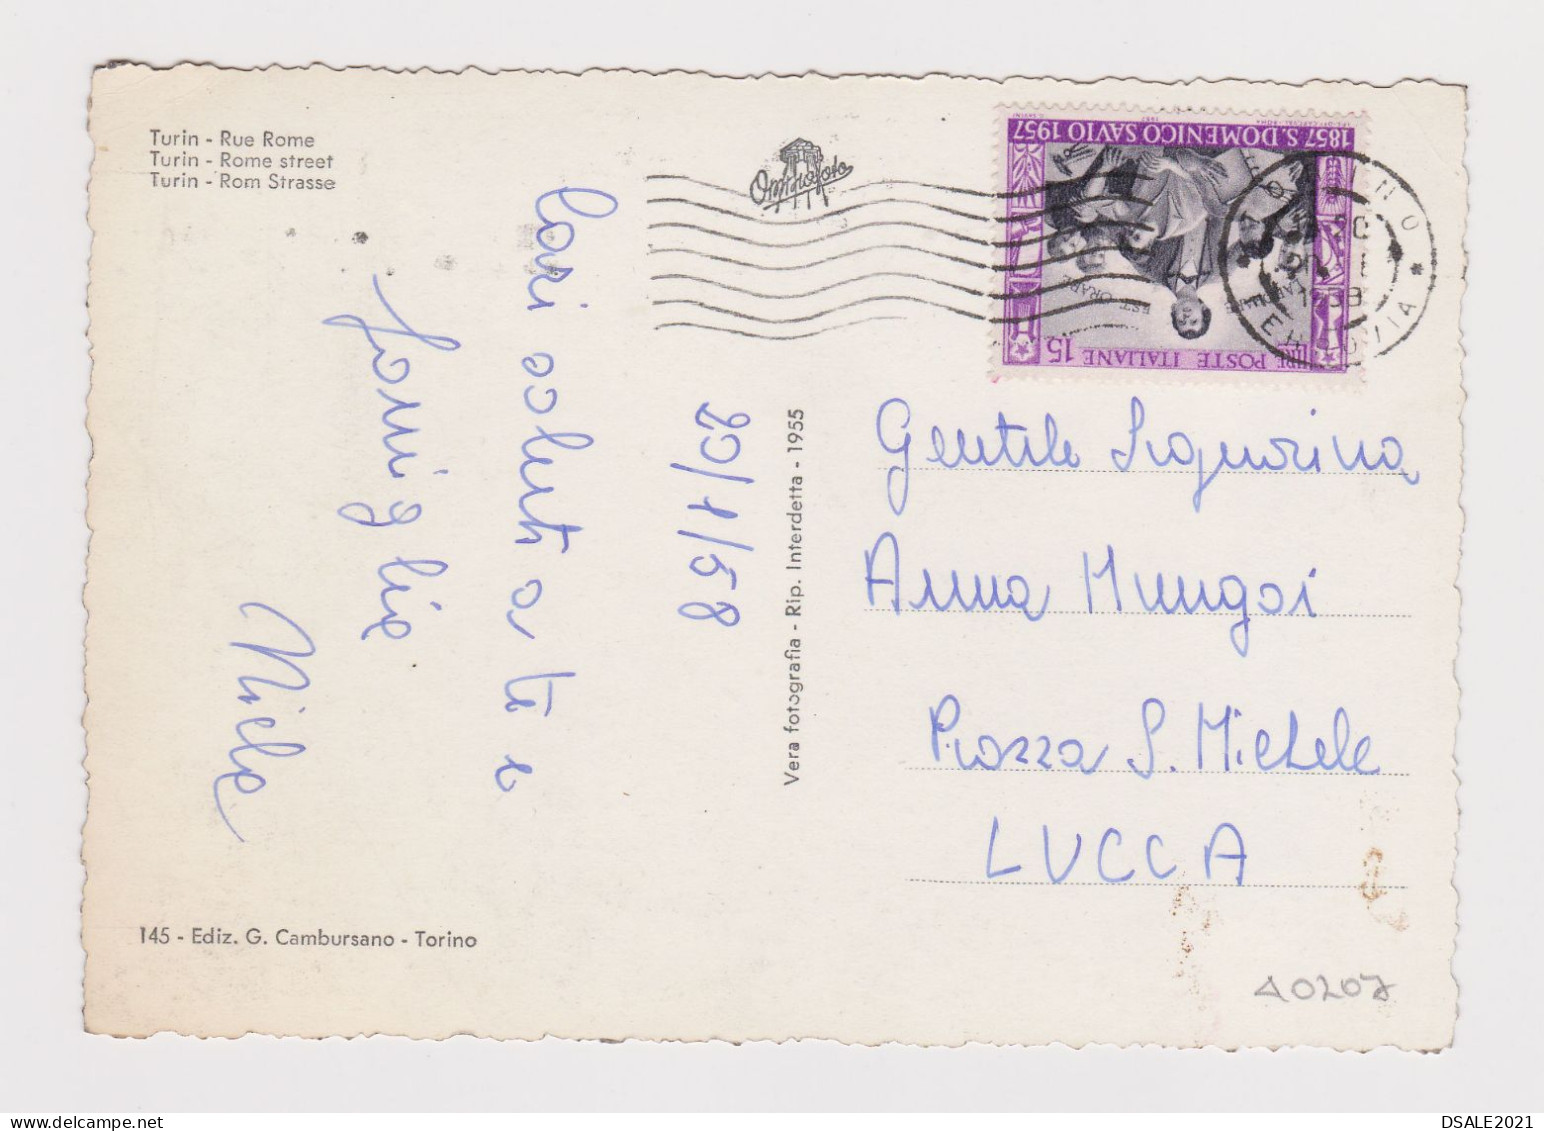 Turin - Rue Rome
Turin - Rome street
Turin - Rom Strasse
Omniafoto
1857 S. DOMENICO SAVIO 1957
EST ORARE
LIRE POSTE ITALIANE 15
FERROVIA
20/1/58
Cari saluti a te e
famiglia
Vera fotografia - Rip. Interdetta - 1955
Gentile Signorina
Anna Mungai
Piazza S. Michele
LUCCA
145 - Ediz. G. Cambursano - Torino
A0207
DSALE2021